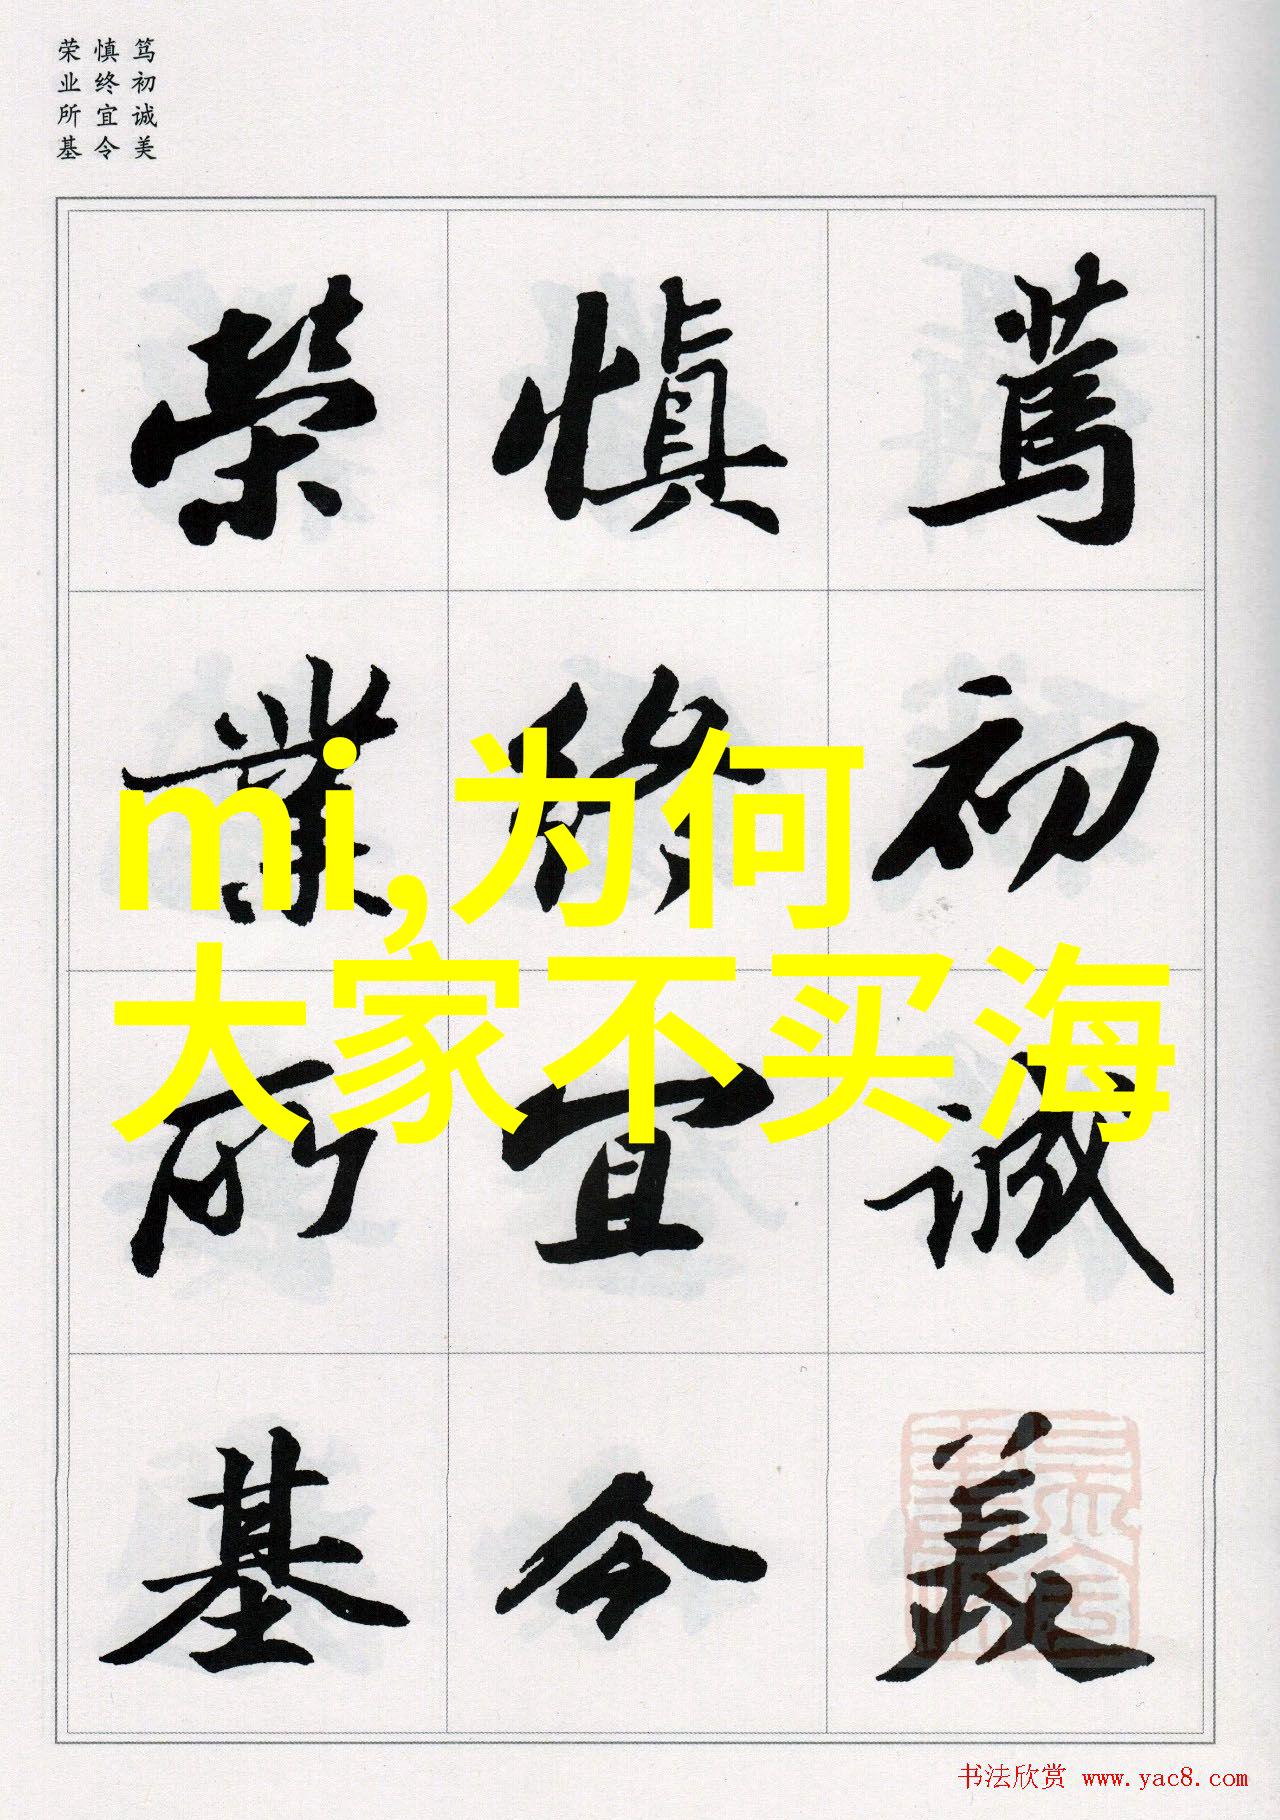 笃初诚美
慎终宜令
荣业所基
篤初誠美
慎終宜令
榮業所基
mi,为何
大家不买海
书法欣赏 www.yac8.com